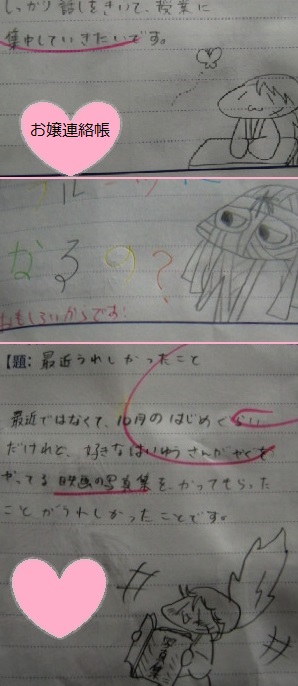 しっかり話しをきいて、授業に
集中していきたいです。
お嬢連絡帳
なるの?
おもしろいからです!
【題: 最近うれしかったこと
最近ではなくて、10月のはじめくらい
だけれど、好きなはいゆうさんがやくを
やってる映画の写真集を、かってもらった
ことがうれしかったことです。
写真集